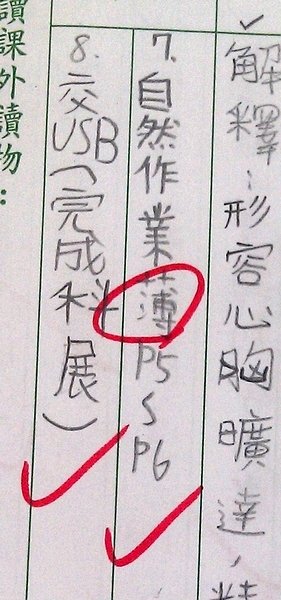 解釋:形容心胸曠達,
7.自然作業薄P5~P6
8.交USB(完成科展)
讀課外讀物: